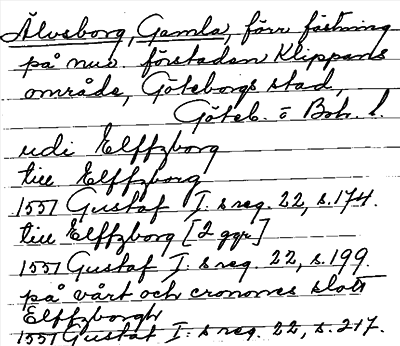 Älvsborg, Gamla, förr fästning
på nuv. förstaden Klippans
område, Göteborgs stad,
Göteb. o Boh. l.
udi Elffzborg
till Elffzborg
1551 Gustaf I:s reg. 22, s. 174.
till Elffzborg [2 ggr]
1551 Gustaf I:s reg. 22, s. 199.
på vårt och cronones slott
Elffzborgh
1551 Gustaf I:s reg. 22, s. 217.